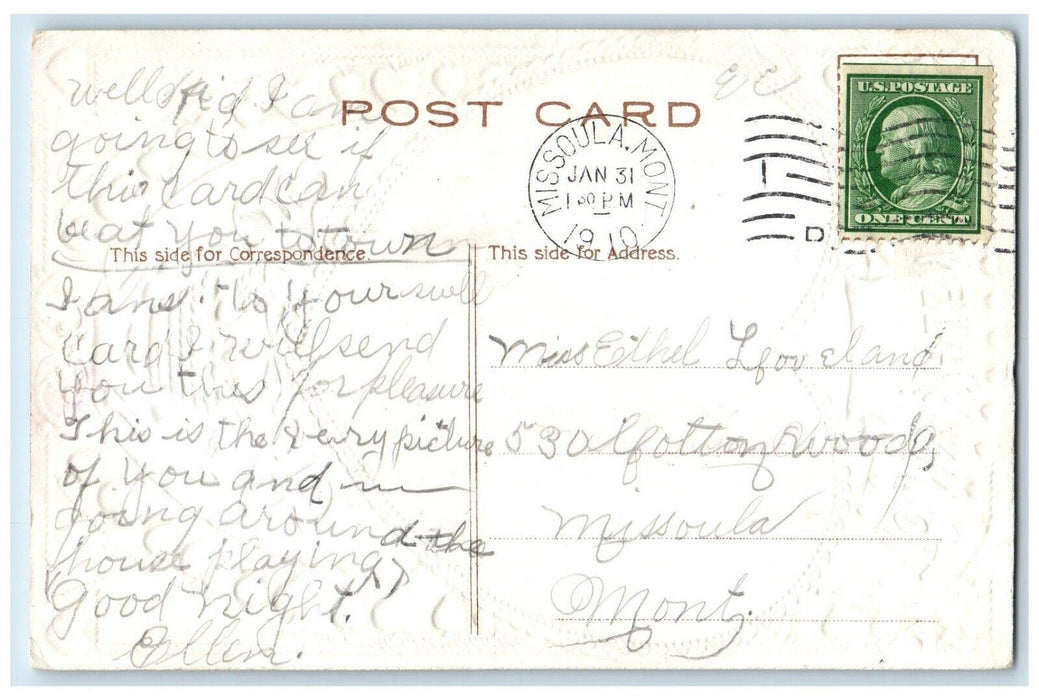 POST CARD
U.S. POSTAGE
ONE CENT
MISSOULA, MONT.
JAN 31
1 30 PM
1910
D
This side for Correspondence
This side for Address.
Well I am
going to see if
this card can
beat you to town
I ans. Your swell
card I will send
you this for pleasure
This is the very picture
of you and m
going around the
house playing
(Good night.)
Ellen.
Miss Ethel
530 Cotton Wood,
Missoula
Mont.